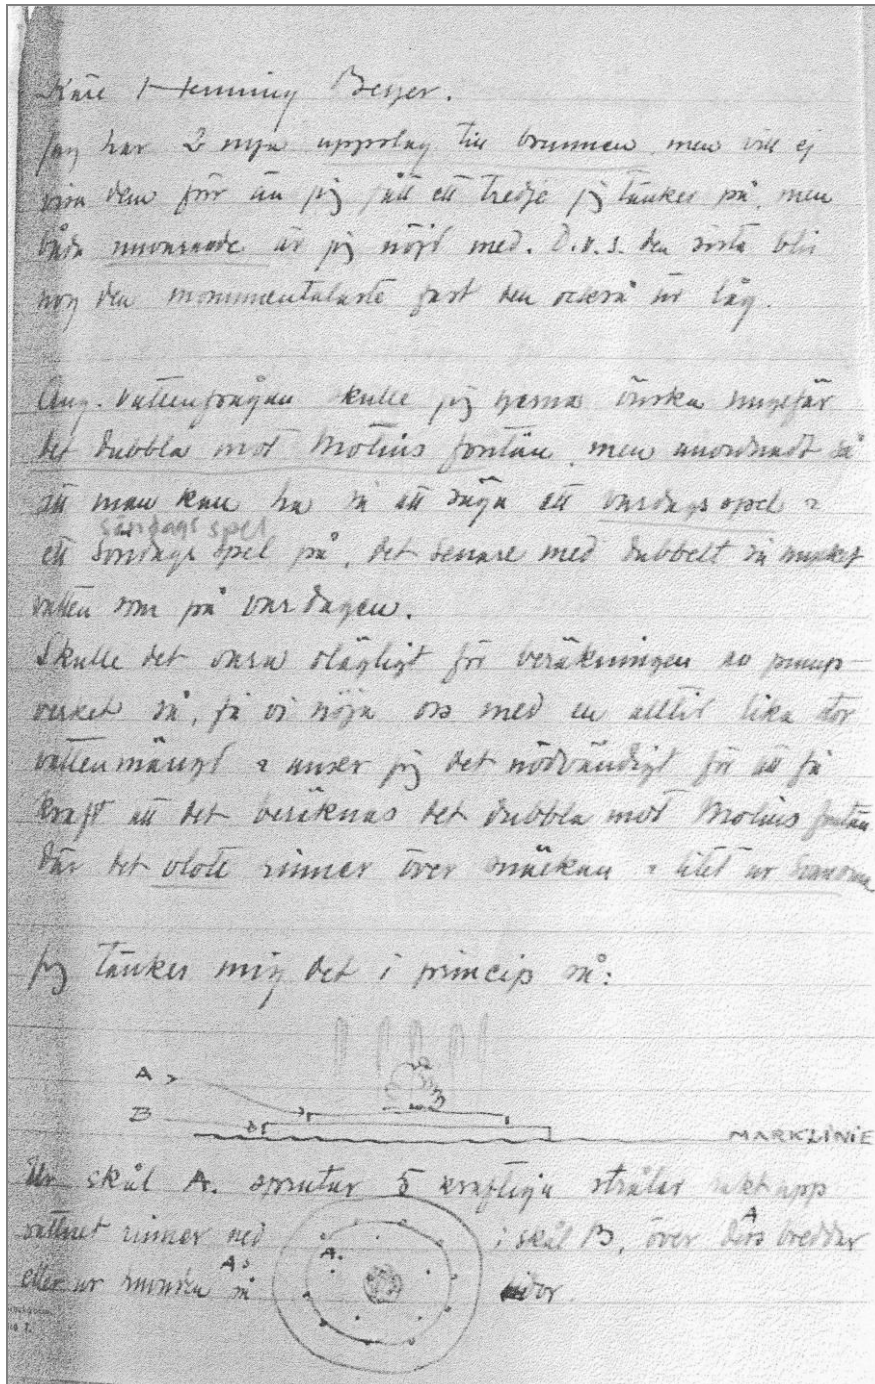 Käre Henning Beyer.
Jag har 2 nya uppslag till brunnen men vill ej
visa dem förr än jag fått ett tredje jag tänker på, men
båda nuvarande är jag nöjd med. D.v.s. den sista blir
nog den monumentalaste fast den också är låg.
Ang. vattenfrågan skulle jag gärna önska ungefär
det dubbla mot Molins fontän, men anordnadt så
att man kan ha så att säga ett vardagsspel &
söndagsspel
ett söndagsspel på, det senare med dubbelt så mycket
vatten som på vardagen.
Skulle det vara olägligt för beräkningen av pump-
verket så, få vi nöja oss med en alltid lika stor
vattenmängd & anser jag det nödvändigt för att få
kraft att det beräknas det dubbla mot Molins fontän
där det blott rinner över snäckan & litet ur svanarna
Jag tänker mig det i princip så:
A
B
MARKLINIE
Ur skål A. sprutar 5 kraftiga strålar rakt upp
vattnet rinner ned i skål B, över dess A breddar
eller ur små A.s sidor.
A.